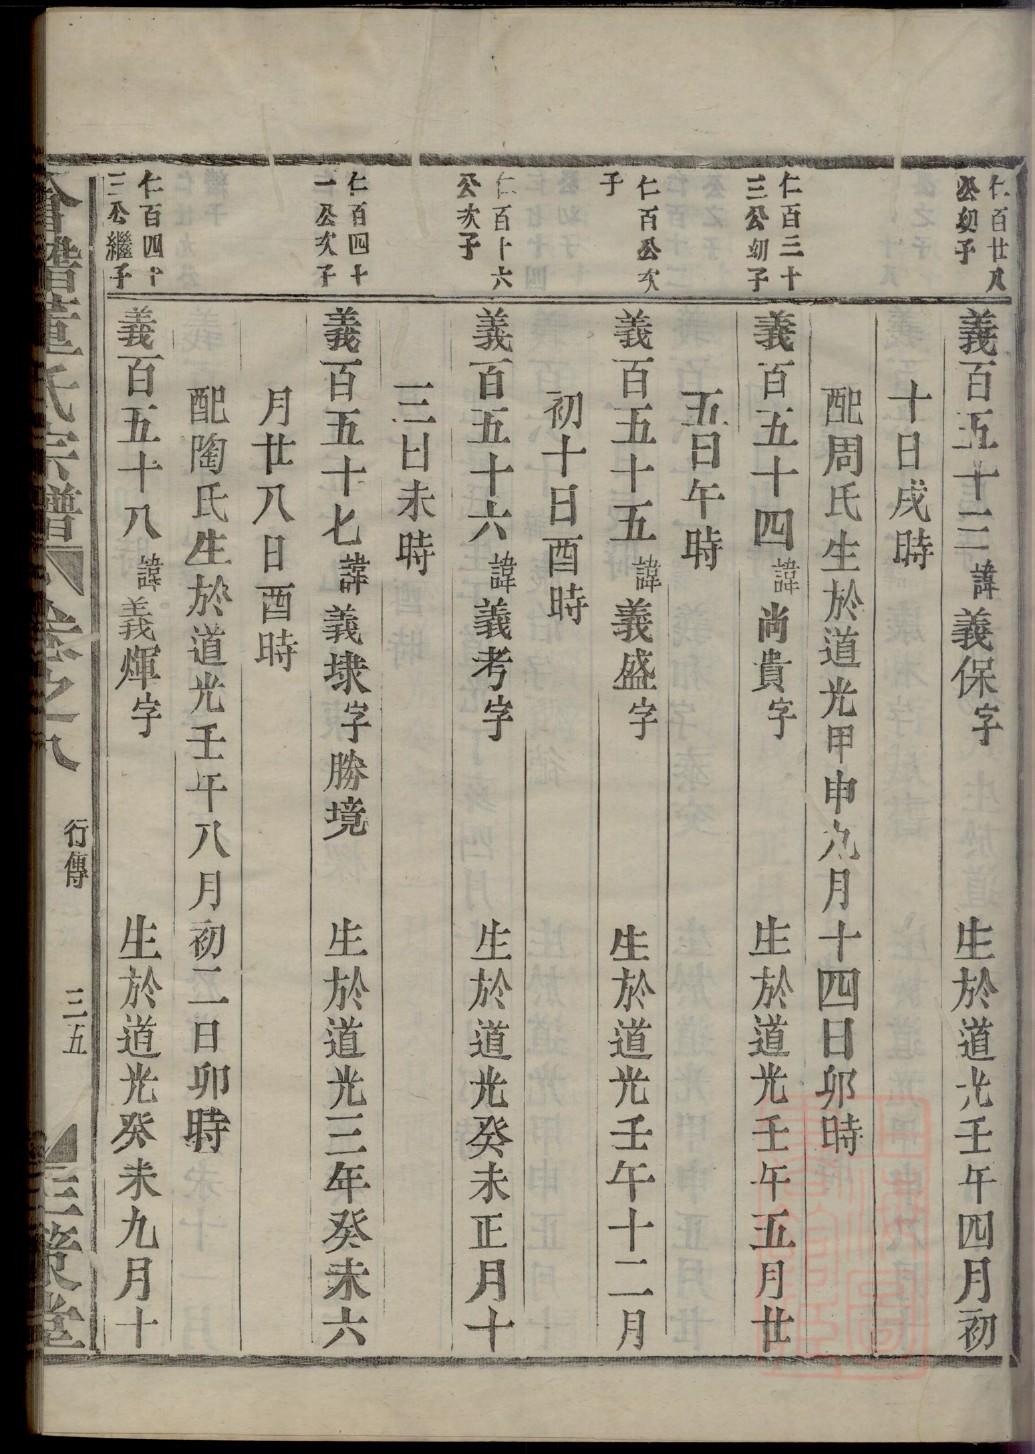 仁百廿八
公幼子
義百五十三諱義保字 生於道光壬午四月初
十日戌時
配周氏生於道光甲申九月十四日卯時
仁百三十
三公幼子
義百五十四諱尚貴字 生於道光壬午五月廿
五日午時
仁百公次
子
義百五十五諱義盛字 生於道光壬午十二月
初十日酉時
仁百十六
公次子
義百五十六諱義考字 生於道光癸未正月十
三日未時
仁百四十
一公次子
義百五十七諱義埭字勝境 生於道光三年癸未六
月廿八日酉時
配陶氏生於道光壬午八月初二日卯時
仁百四十
三公繼子
義百五十八諱義煇字 生於道光癸未九月十
會稽董氏宗譜 卷之八 行傳 三五 三策堂